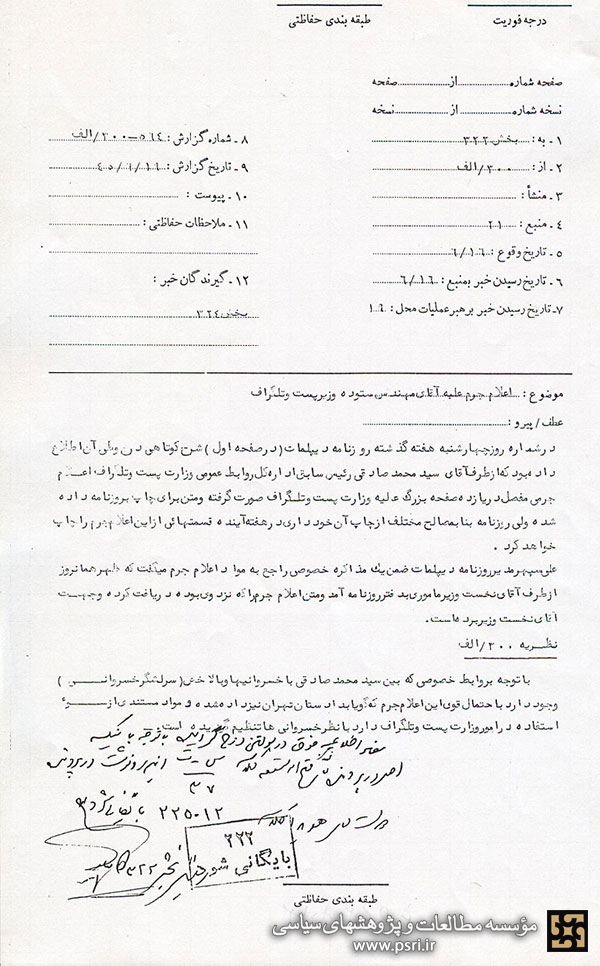 درجه فوریت
طبقه بندی حفاظتی
صفحه شماره ............ از ............ صفحه
نسخه شماره ............ از ............ نسخه
۱ - به : بخش ۳۲۲
۲ - از : ۳۰۰/الف
۳ - منشأ :
۴ - منبع : ۲۱
۵ - تاریخ وقوع : ۶/۱۶
۶ - تاریخ رسیدن خبر بمنبع : ۶/۱۶
۷ - تاریخ رسیدن خبر برهبرعملیات محل : ۱۶
۸ - شماره گزارش : ۵۶۴-۳۰۰/الف
۹ - تاریخ گزارش : ۴۵/۶/۱۶
۱۰ - پیوست :
۱۱ - ملاحظات حفاظتی :
۱۲ - گیرندگان خبر :
بخش ۳۲۴
موضوع : اعلام جرم علیه آقای مهندس ستوده وزیرپست وتلگراف
عطف / پیرو :
در شماره روزچهارشنبه هفته گذشته روزنامه دیپلمات (در صفحه اول) شرح کوتاهی درج وطی آن اطلاع
داده بود که از طرف آقای سید محمد صادقی رئیس سابق اداره کل روابط عمومی وزارت پست وتلگراف اعلام
جرمی مفصل در یازده صفحه بزرگ علیه وزارت پست وتلگراف صورت گرفته ومتن برای چاپ بروزنامه داده
شده ولی روزنامه بنا بمصالح مختلف از چاپ آن خودداری در هفته آینده قسمتهائی از این اعلام جرم را چاپ
خواهد کرد .
علی سپهر مدیر روزنامه دیپلمات ضمن یک مذاکره خصوصی راجع به مواد اعلام جرم میگفت که ظهر همانروز
از طرف آقای نخست وزیر ماموری بد فتر روزنامه آمد ومتن اعلام جرم را که نزد وی بوده دریافت کرده وجهت
آقای نخست وزیر برده است .
نظریه ۳۰۰/الف
با توجه بروابط خصوصی که بین سید محمد صادقی با خسروانیها وبالاخص (سرلشگر خسروانی)
وجود دارد با احتمال قوی این اعلام جرم که گویا بدادستان تهران نیز داده شده و مواد مستندی از سوء
استفاده در امور وزارت پست وتلگراف دارد با نظر خسروانی ها تنظیم گردیده است .
۳۷
۲۲۵۰۱۲
۳۲۲
بایگانی شود
۳۲۲
طبقه بندی حفاظتی
مؤسسه مطالعات و پژوهشهای سیاسی
www.psri.ir